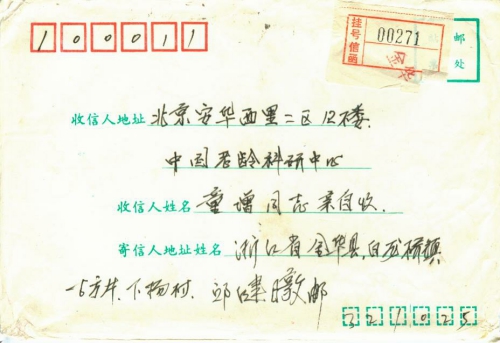 100011
挂号信函
00271
邮
处
收信人地址 北京安华西里二区12楼
中国老龄科研中心
收信人姓名 童增同志亲自收.
寄信人地址姓名 浙江省金华县,白龙桥镇
下杨村. 邮
321025